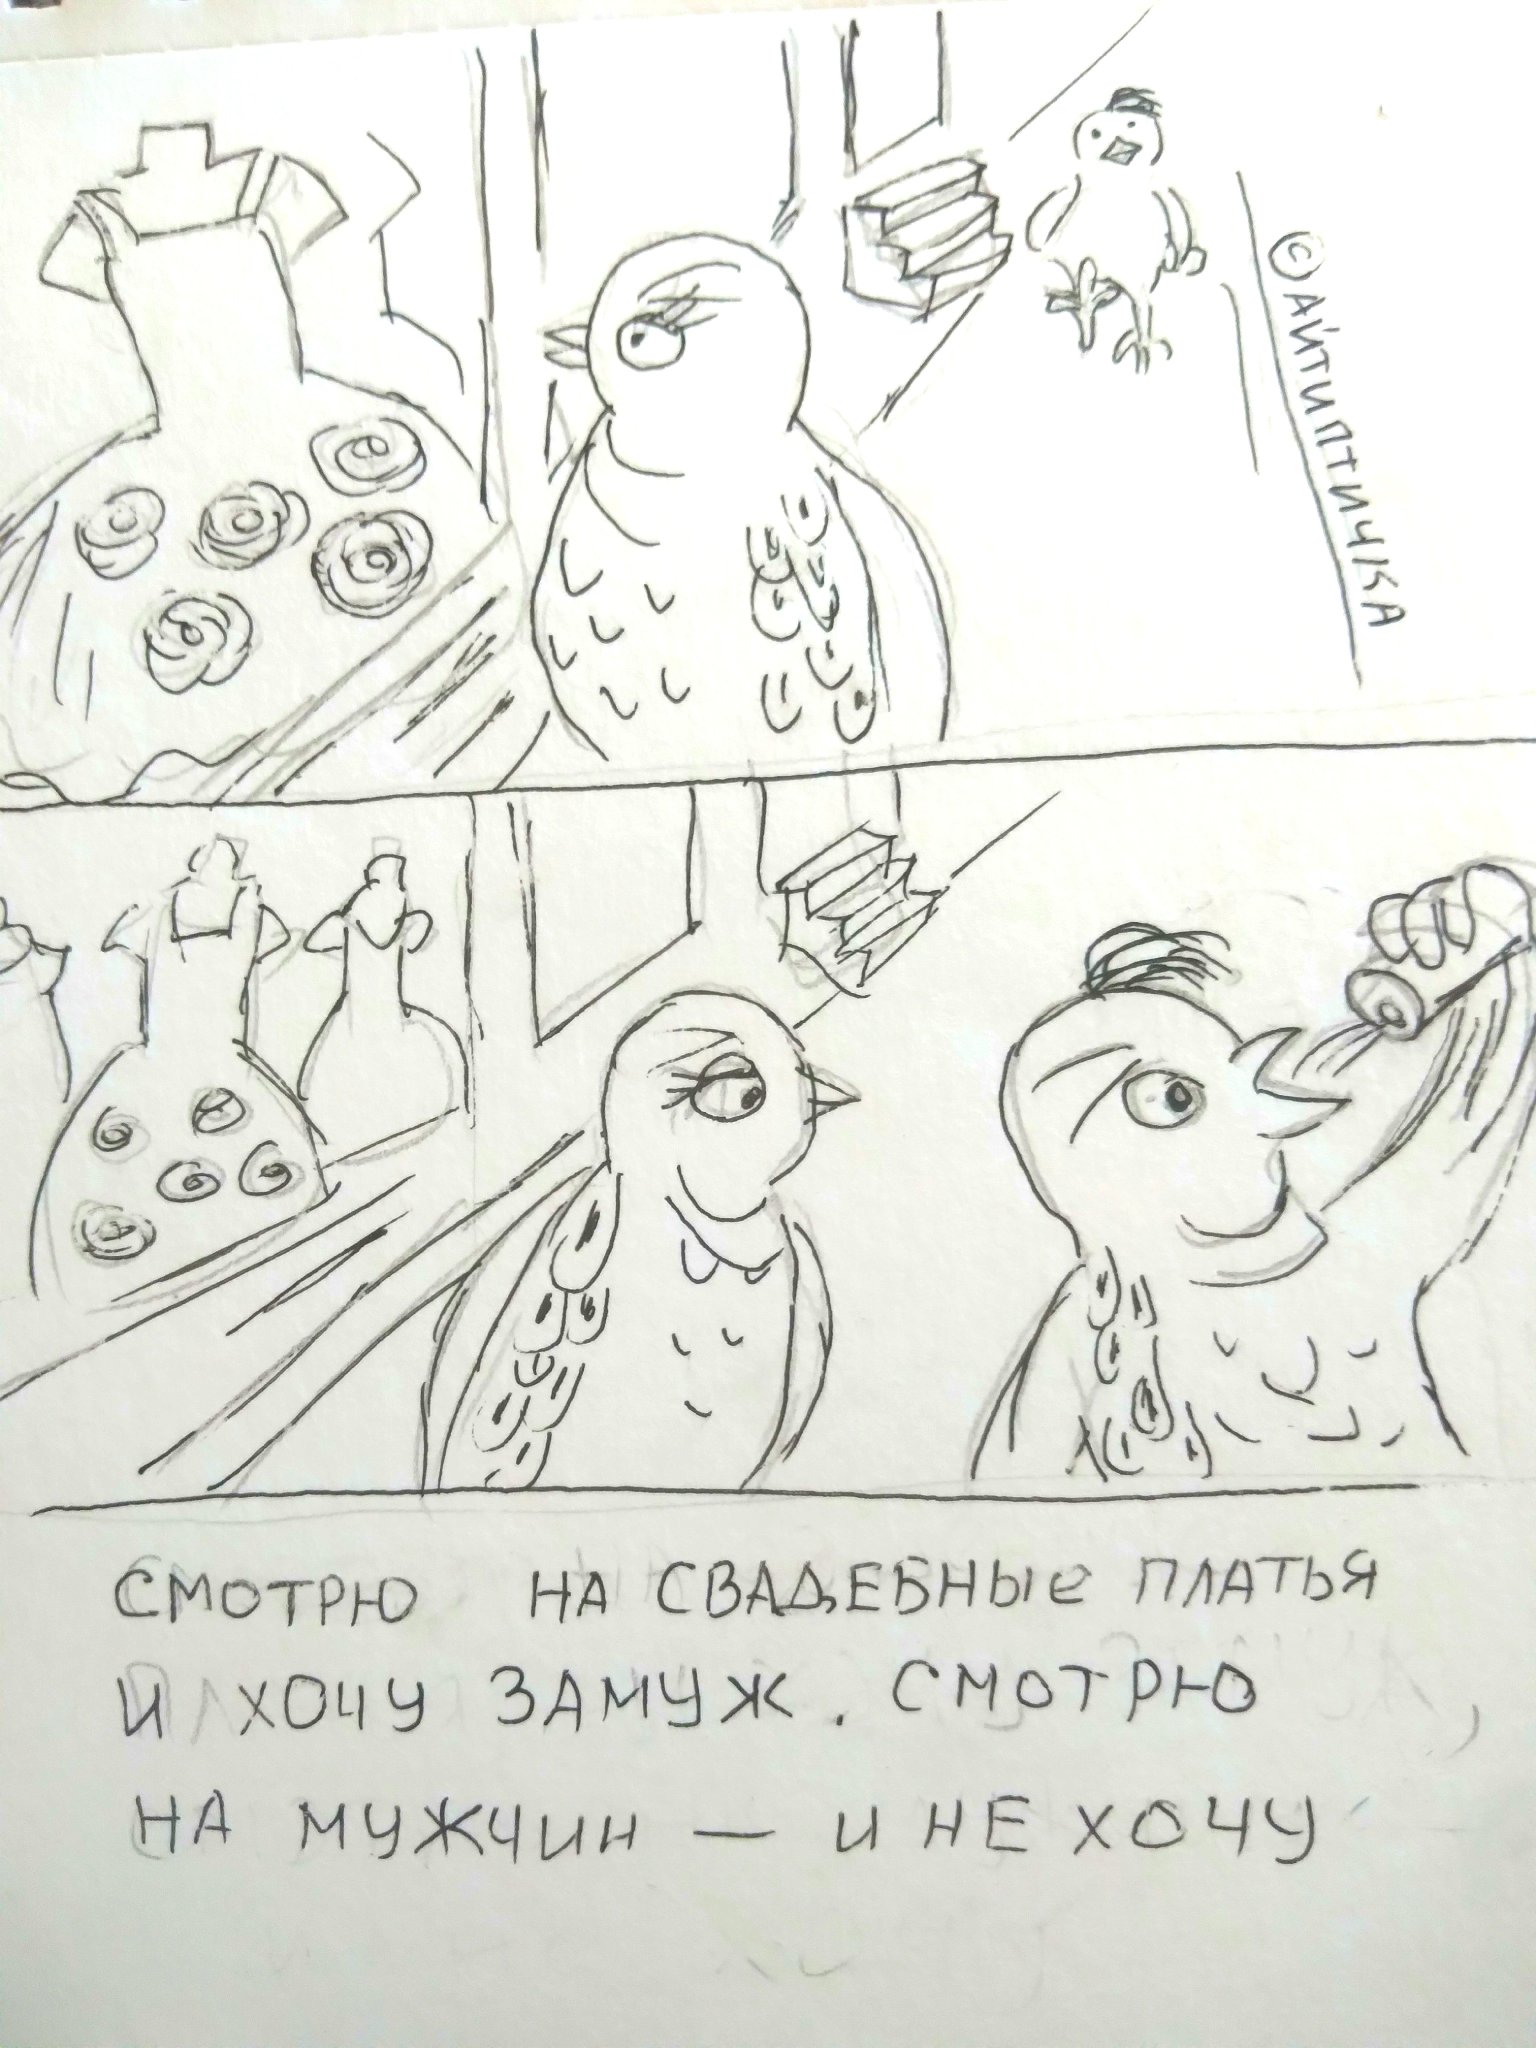 © АЙТИПТИЧКА
СМОТРЮ НА СВАДЕБНЫЕ ПЛАТЬЯ
И ХОЧУ ЗАМУЖ. СМОТРЮ
НА МУЖЧИН — И НЕ ХОЧУ